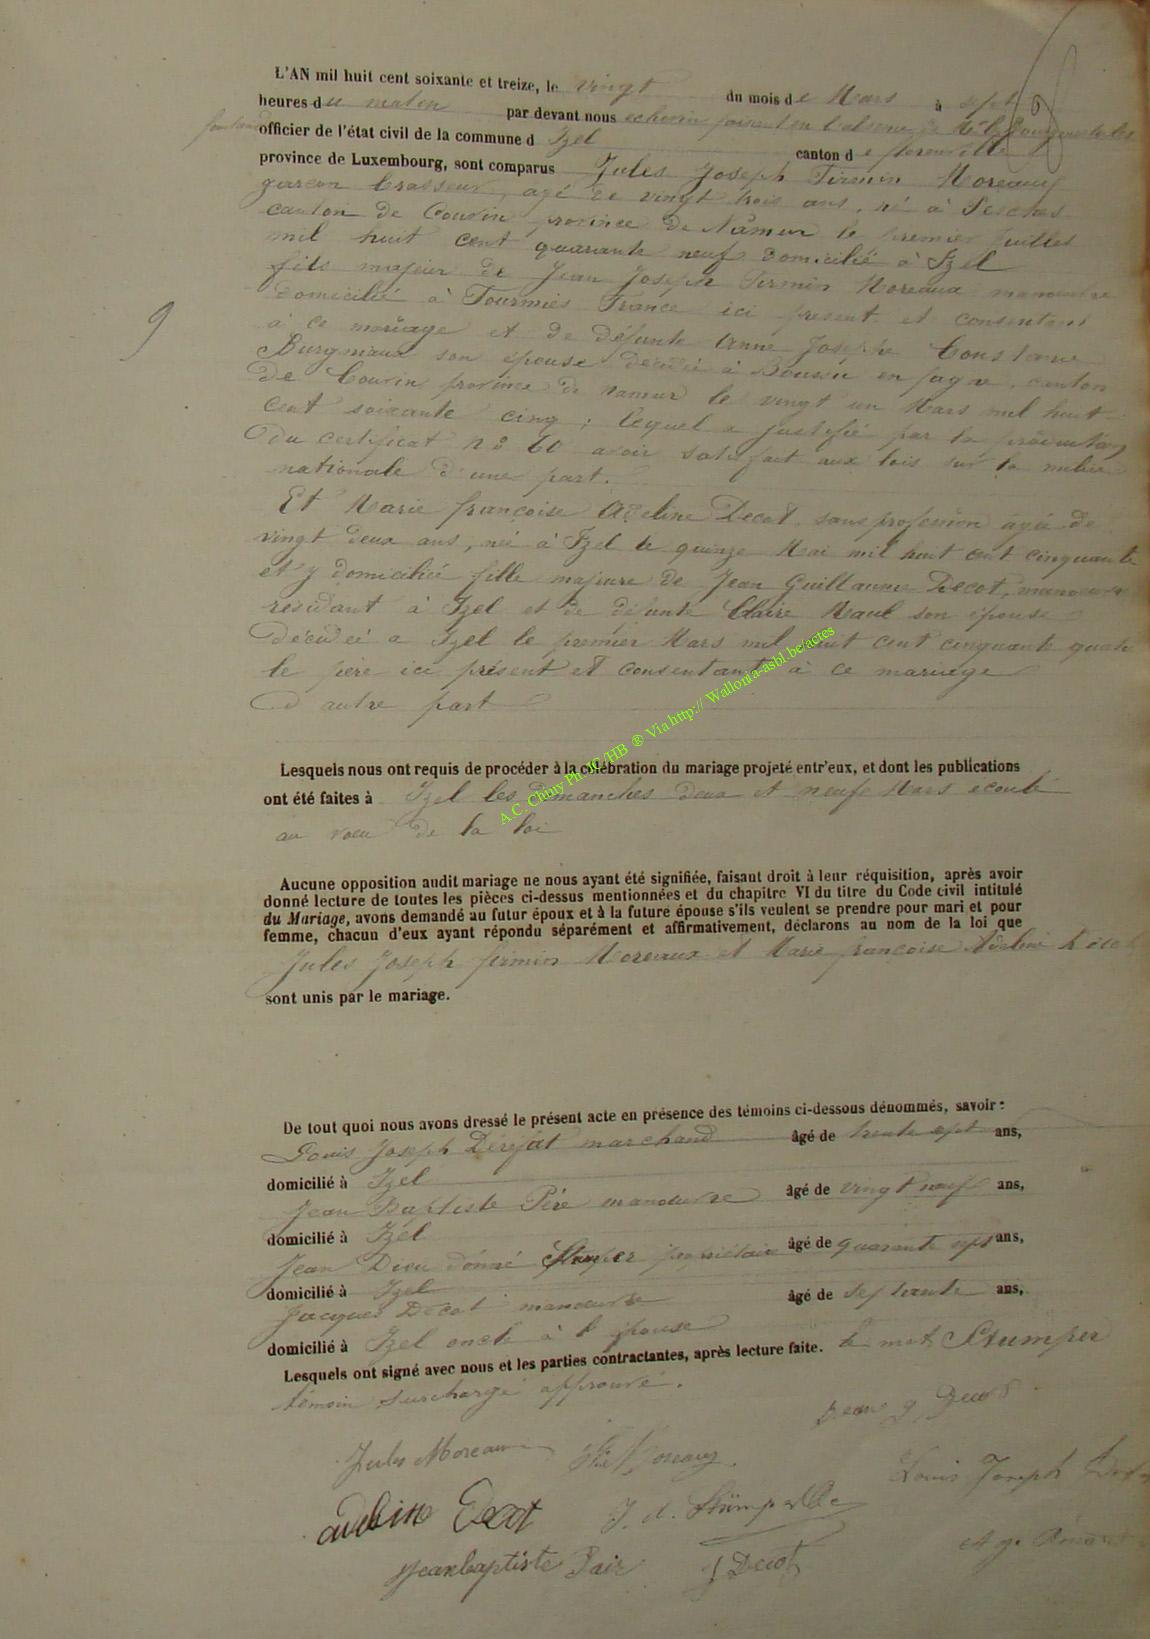 L'AN mil huit cent soixante et treize, le vingt du mois de Mars à sept
heures du matin par devant nous echevin faisant en l'absence de
officier de l'état civil de la commune d Izel canton de florenville
province de Luxembourg, sont comparus Jules Joseph Firmin Moreaux
garçon brasseur, agé de vingt trois ans, né à Pesches
canton de Couvin province de Namur le premier juillet
mil huit cent quarante neuf domicilié à Izel
fils majeur de Jean Joseph Firmin Moreaux manoeuvre
domicilié à Fourmies France ici present et consentant
à ce mariage et de défunte Anne Josephe Constance
son épouse décédée à Boussu en fagne, canton
de Couvin province de namur le vingt un Mars mil huit
cent soixante cinq ; lequel a justifié par la production
du certificat n° 60 avoir satisfait aux lois sur la milice
nationale d'une part.
9
Et Marie françoise Adeline Decot sans profession agée de
vingt deux ans, née à Izel le quinze Mai mil huit cent cinquante
et y domiciliée fille majeure de Jean Guillaume Decot, manoeuvre
residant à Izel et de défunte Claire Maul son épouse
décédée a Izel le premier Mars mil huit cent cinquante quatre
le père ici présent et consentant à ce mariage
D autre part
A.C. Chiny Ph. JC/HB ® Via http:// Wallonia-asbl.be/actes
Lesquels nous ont requis de procéder à la célébration du mariage projeté entr'eux, et dont les publications
ont été faites à Izel les dimanches deux et neuf Mars ecoulé
au voeu de la loi
Aucune opposition audit mariage ne nous ayant été signifiée, faisant droit à leur réquisition, après avoir
donné lecture de toutes les pièces ci-dessus mentionnées et du chapitre VI du titre du Code civil intitulé
du Mariage, avons demandé au futur époux et à la future épouse s'ils veulent se prendre pour mari et pour
femme, chacun d'eux ayant répondu séparément et affirmativement, déclarons au nom de la loi que
Jules Joseph firmin Moreaux et Marie françoise Adeline Decot
sont unis par le mariage.
De tout quoi nous avons dressé le présent acte en présence des témoins ci-dessous dénommés, savoir :
Louis Joseph marchand âgé de trente sept ans,
domicilié à Izel
Jean Baptiste Péré manoeuvre âgé de vingt neuf ans,
domicilié à Izel
Jean Dieu donné Stumper propriétaire âgé de quarante sept ans,
domicilié à Izel
Jacques Decot manoeuvre âgé de septante ans,
domicilié à Izel oncle à l'épouse
Lesquels ont signé avec nous et les parties contractantes, après lecture faite. le mot Stumper
témoin surchargé approuvé.
Jean g Decot
Jules Moreaux Moreaux
Louis Joseph
adeline Decot J. d. Stümper
Jeanbaptiste Pair J Decot